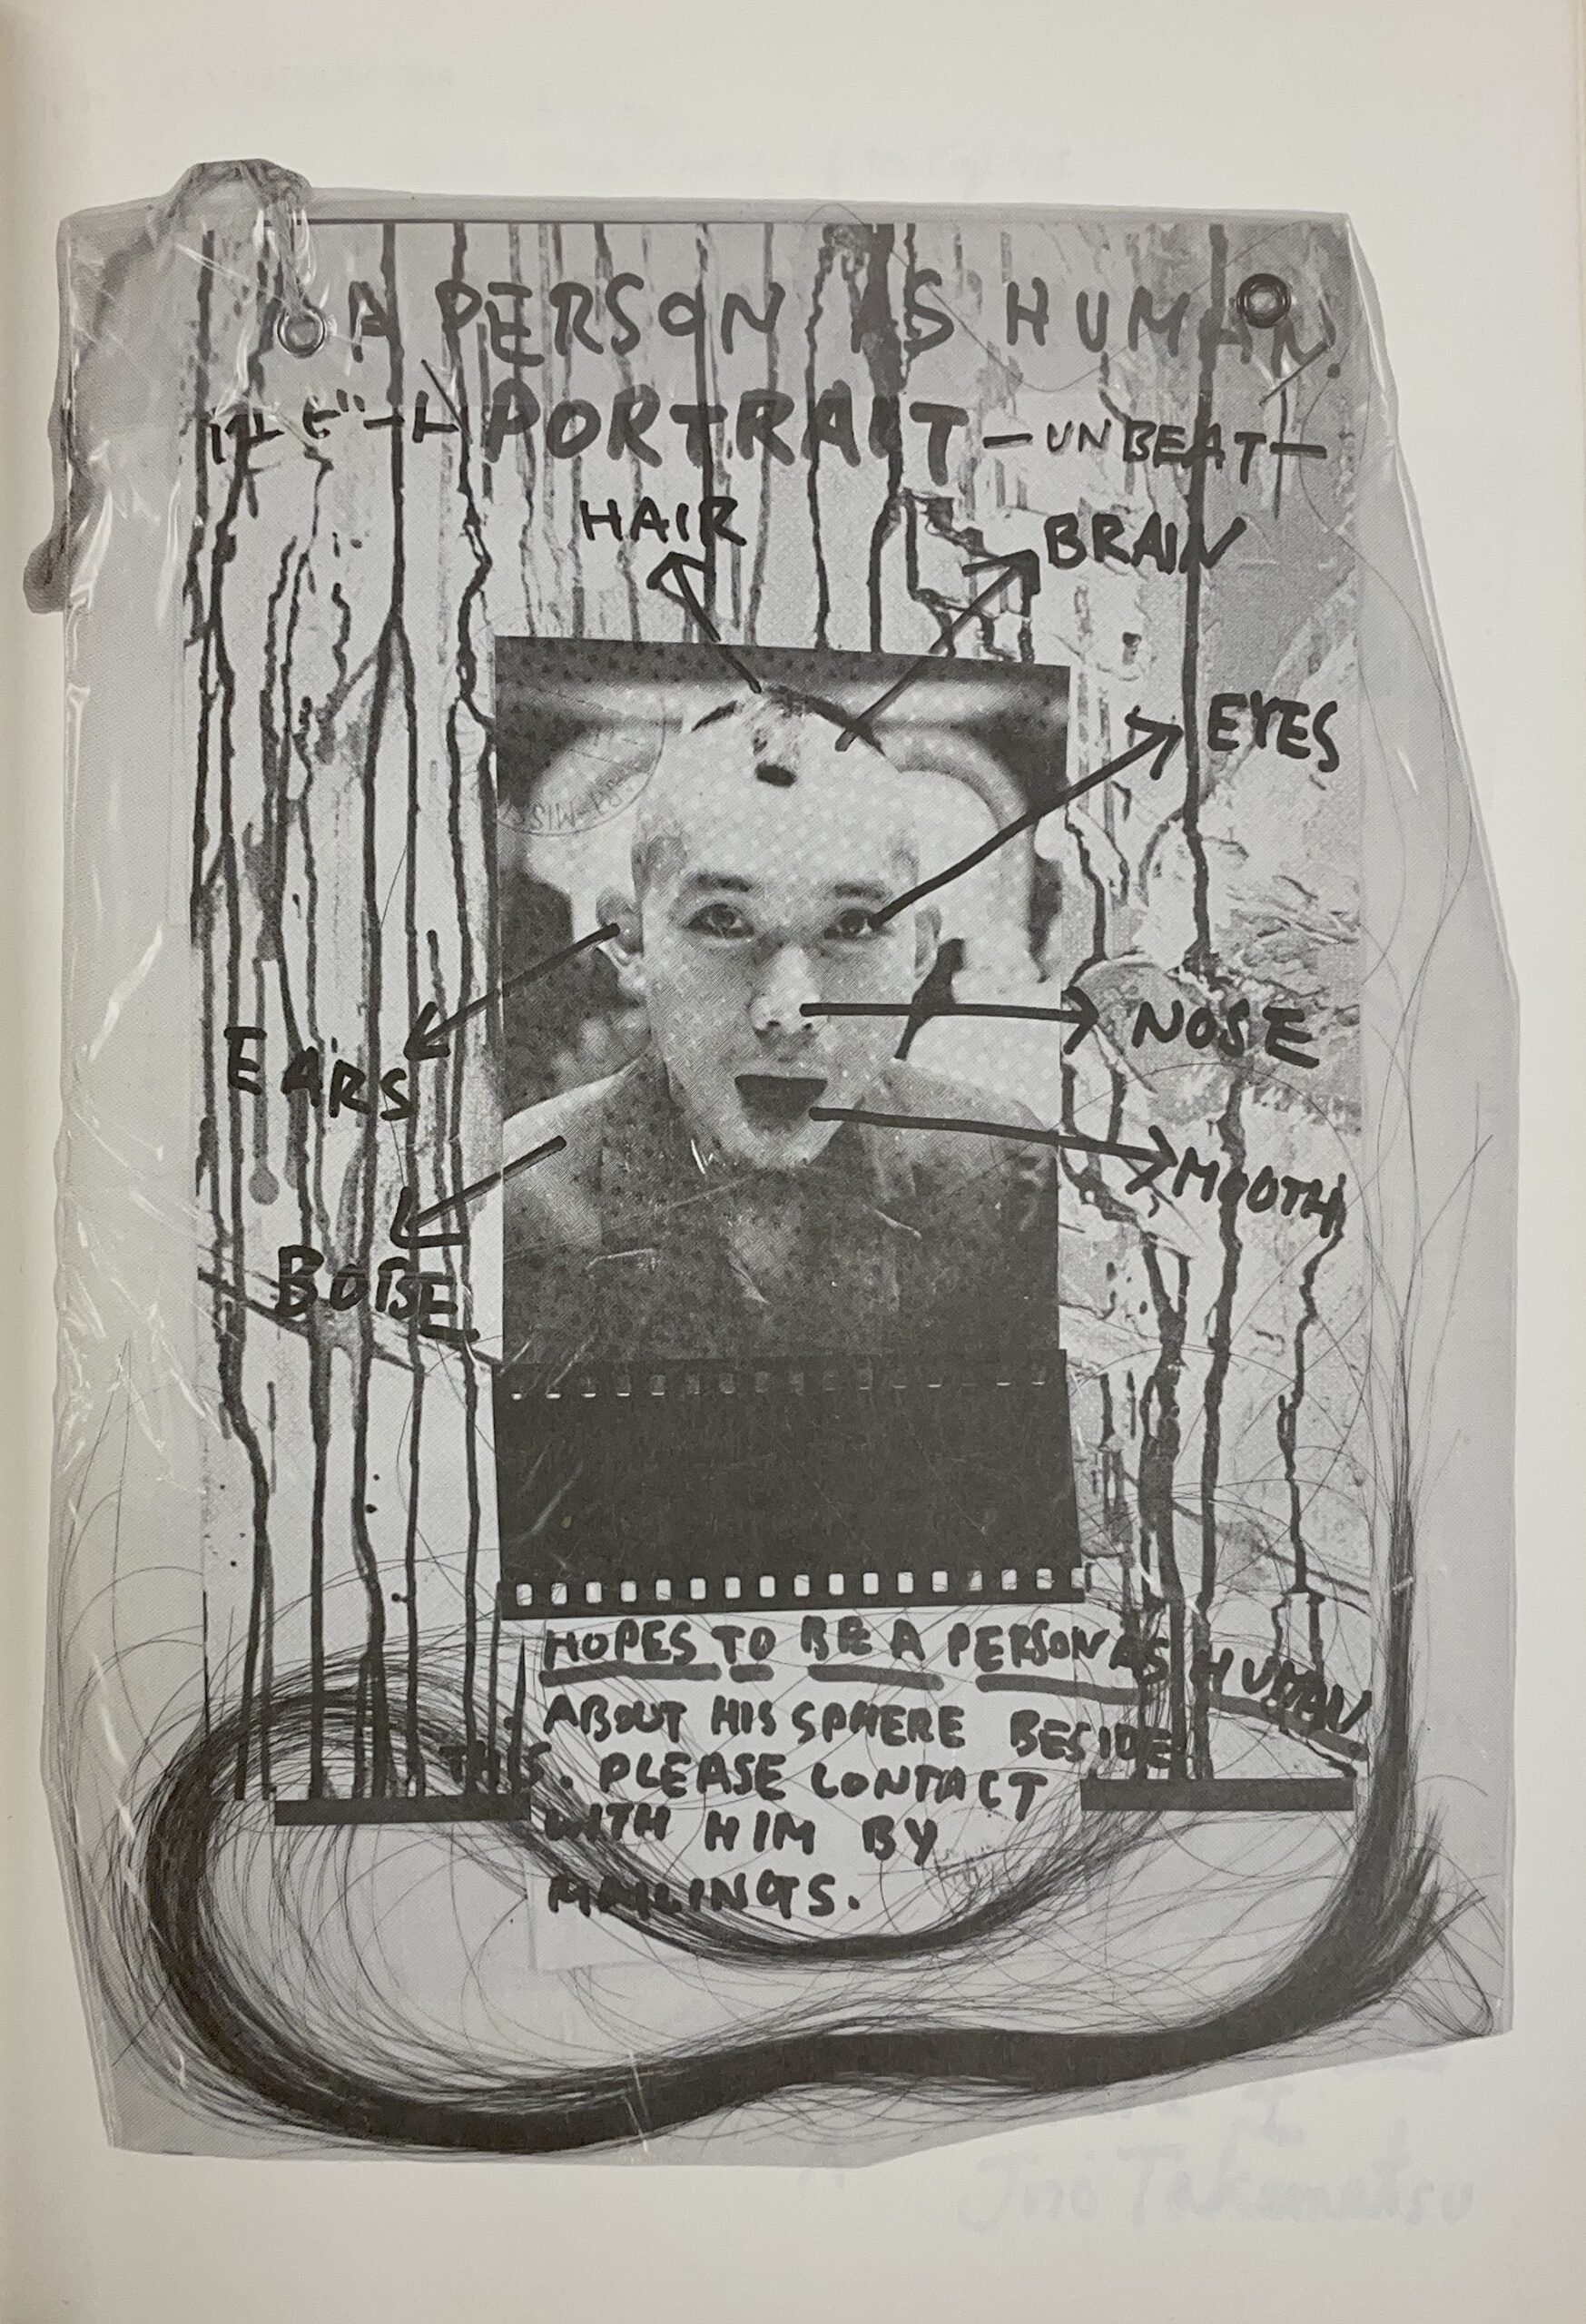 A PERSON AS HUMAN.
PORTRAIT —UNBEAT—
HAIR
BRAIN
EYES
EARS
NOSE
MOOTH
HOPES TO BE A PERSON AS HUMAN
ABOUT HIS SPHERE BESIDE
THIS. PLEASE CONTACT
WITH HIM BY
MAILINGS.
Jiro Takamatsu